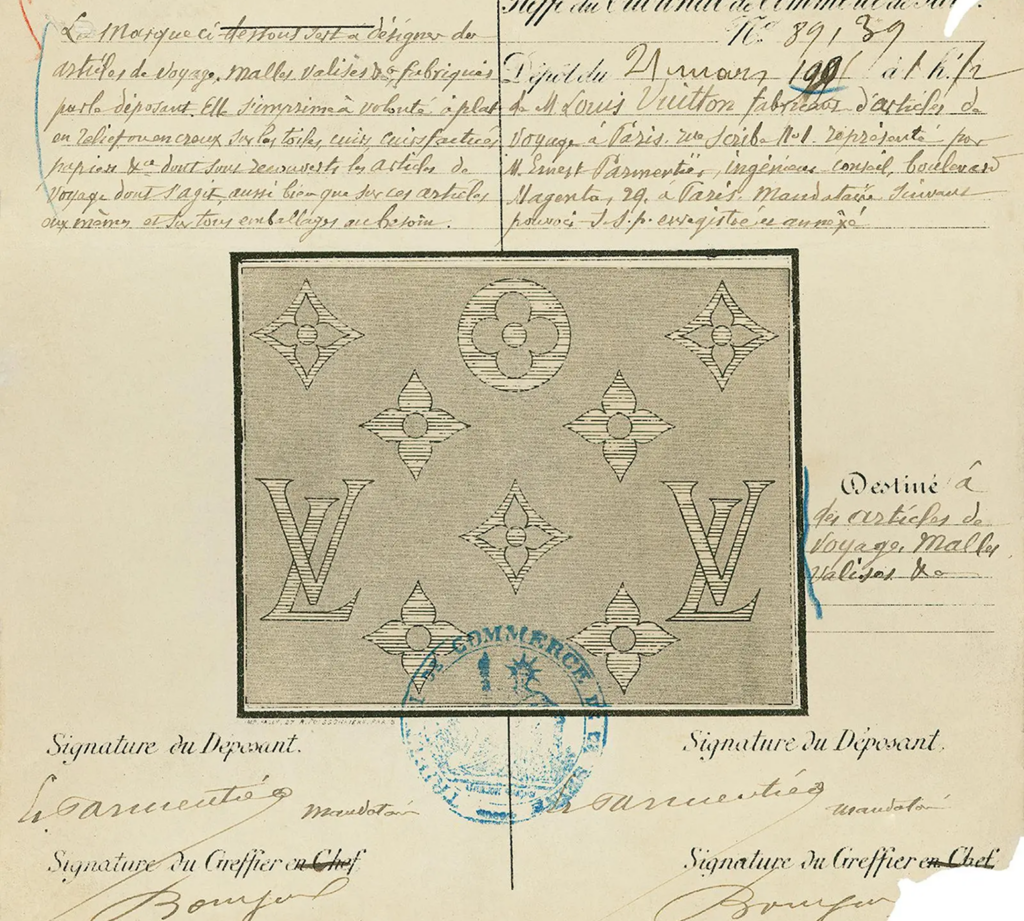 Greffe du Tribunal de Commerce de
La Marque ci dessous sert à désigner des
articles de voyage, malles valises &c fabriqués
par le déposant. Elle s'imprime à volonté à plat
en relief ou en creux sur les toiles, cuirs, cuirs factices
papiers &ca dont sont recouverts les articles de
voyage dont s'agit, aussi bien que sur ces articles
eux mêmes et sur tous emballages au besoin.
No 89,39
Dépôt du 21 mars à 1 h. 1/2
de M Louis Vuitton fabricant d'articles de
Voyage à Paris. rue Scribe No 1. représenté par
M. Ernest Parmentier, ingénieur conseil, boulevard
Magenta, 29, à Paris. Mandataire suivant
pouvoir s.s.p. enregistré et annexé
LV LV
Destiné à
des articles de
Voyage, Malles
Valises &c
TRIBUNAL DE COMMERCE DE LA SEINE
Signature du Déposant. Signature du Déposant.
E. Parmentier mandataire E. Parmentier mandataire
Signature du Greffier en Chef Signature du Greffier en Chef